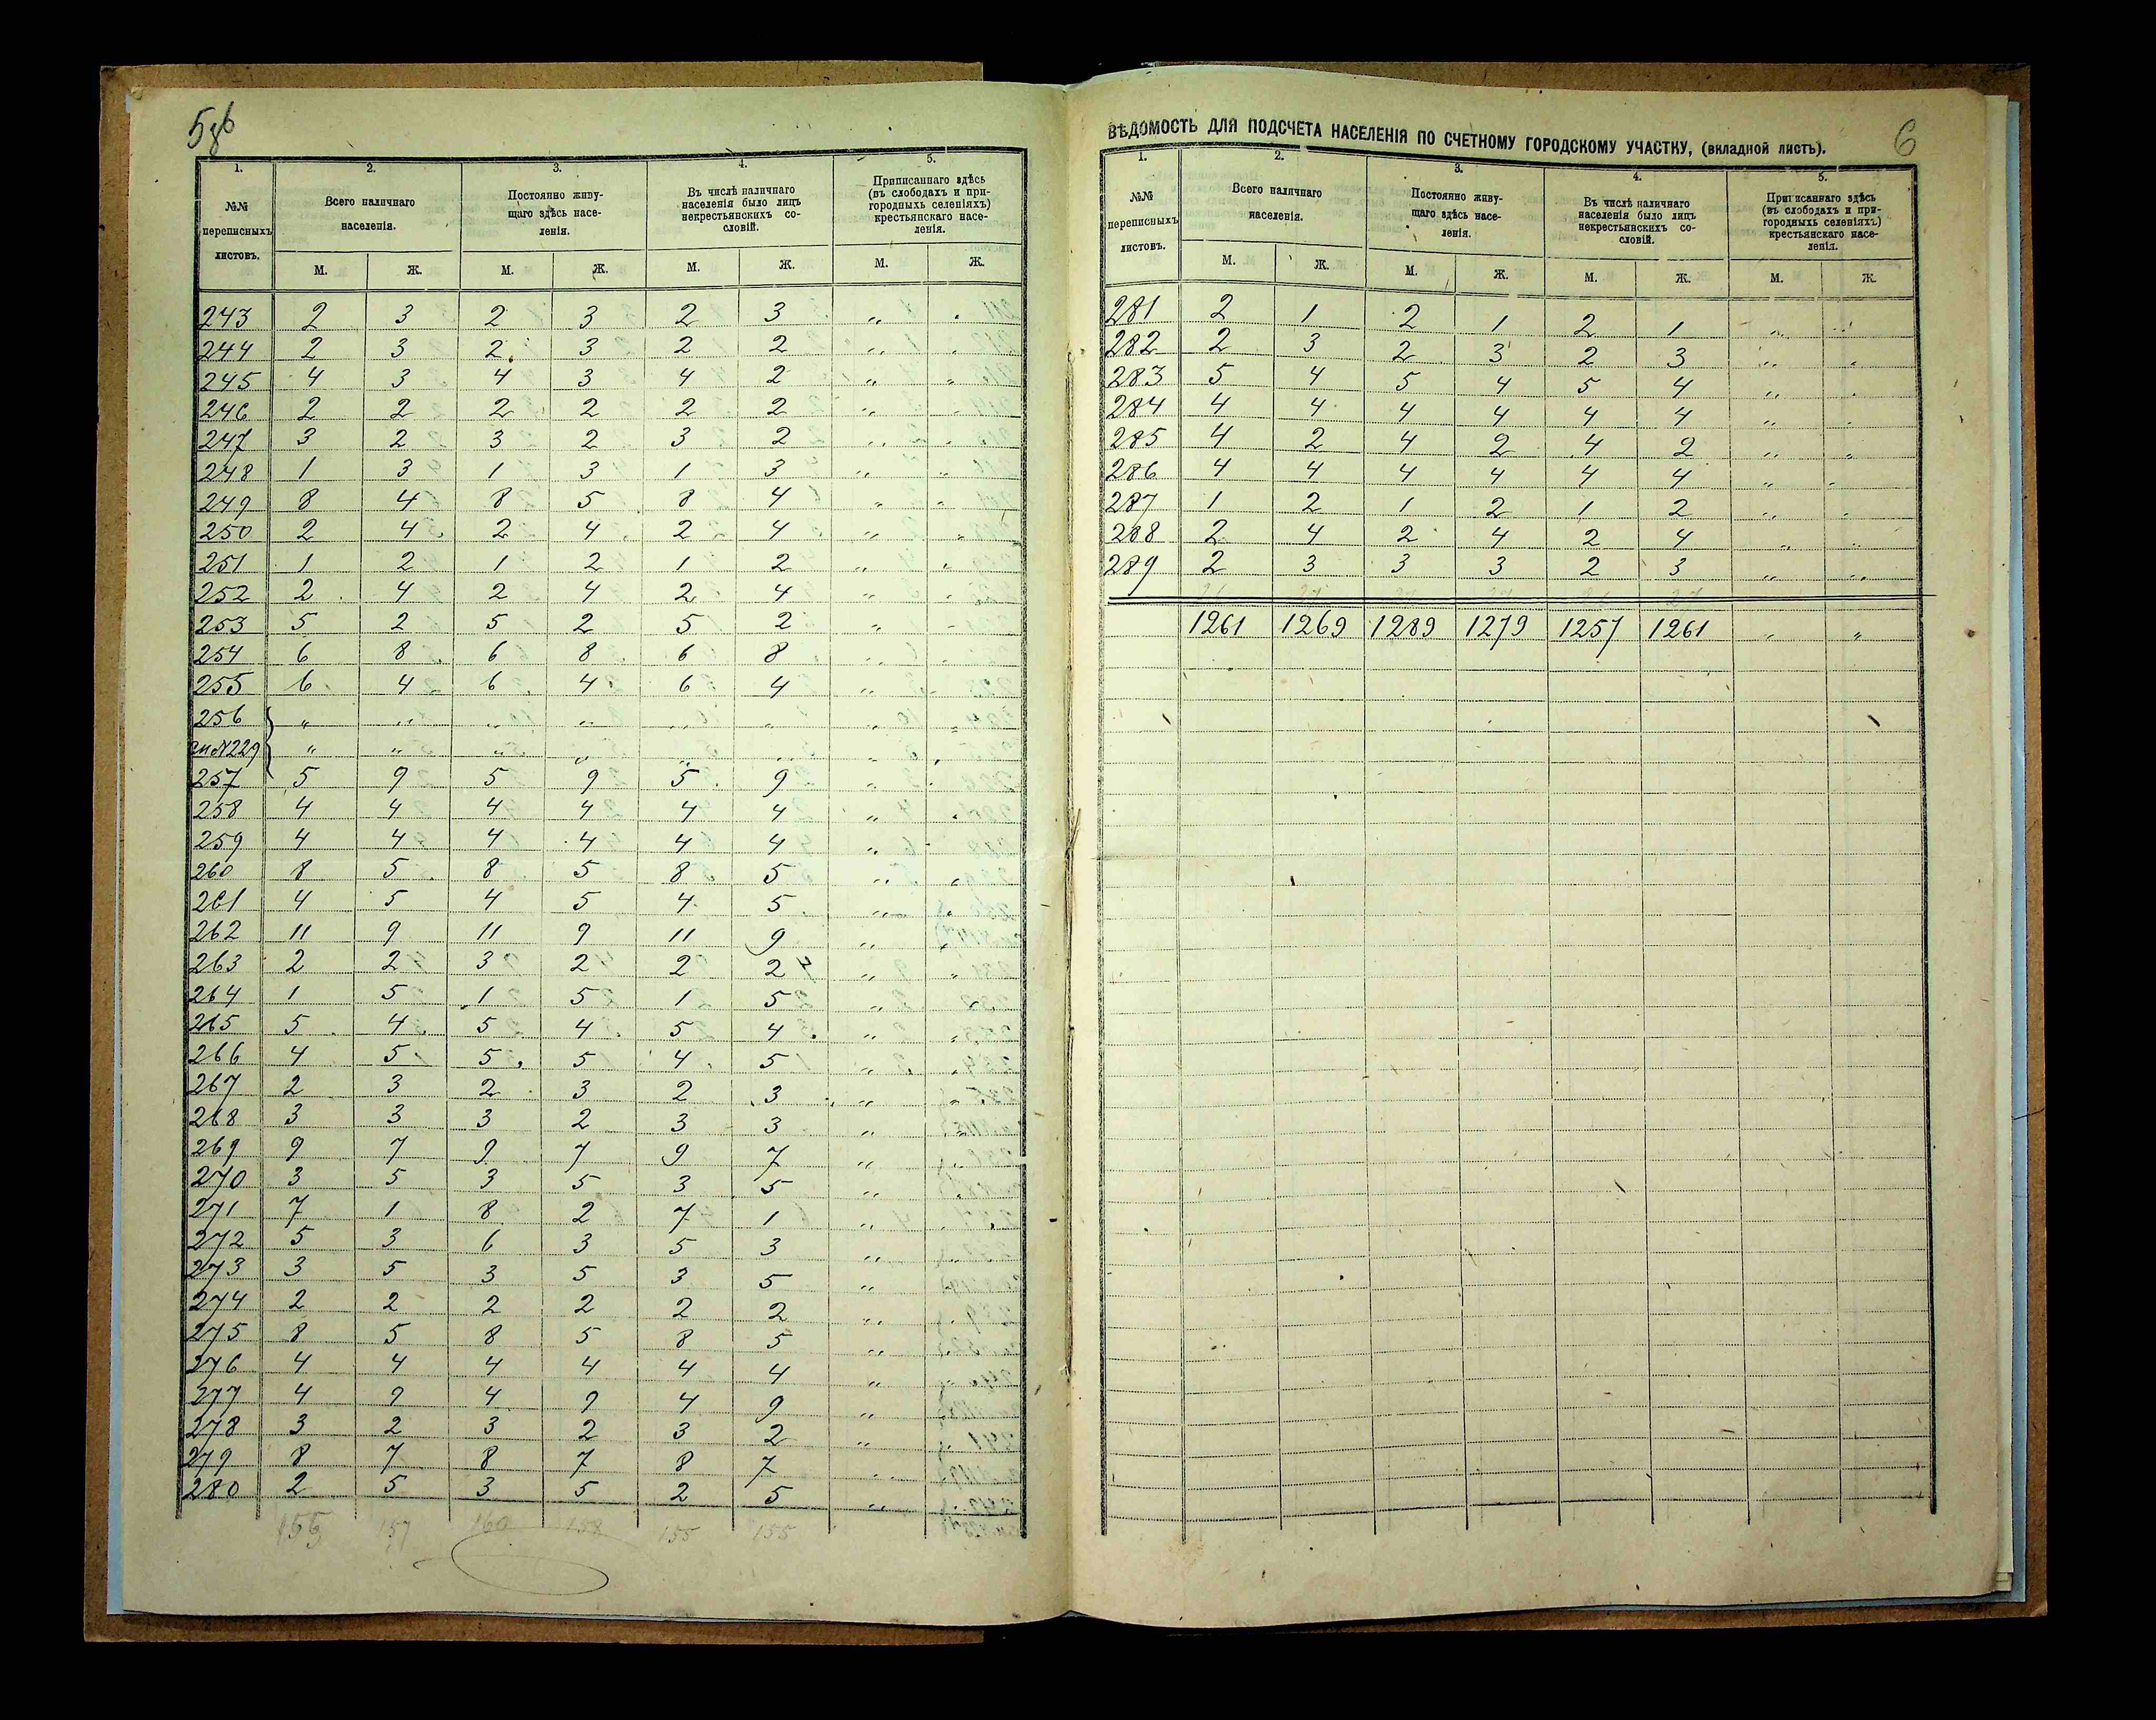 1. 2. 3. 4. 5.
№№ переписныхъ листовъ.
Всего наличнаго населенія.
Постоянно живущаго здѣсь населенія.
Въ числѣ наличнаго населенія было лицъ некрестьянскихъ сословій.
Приписаннаго здѣсь (въ слободахъ и пригородныхъ селеніяхъ) крестьянскаго населенія.
М. Ж. М. Ж. М. Ж. М. Ж.
243 2 3 2 3 2 3 „ „
244 2 3 2 3 2 2 „ „
245 4 3 4 3 4 2 „ „
246 2 2 2 2 2 2 „ „
247 3 2 3 2 3 2 „ „
248 1 3 1 3 1 3 „ „
249 8 4 8 5 8 4 „ „
250 2 4 2 4 2 4 „ „
251 1 2 1 2 1 2 „ „
252 2 4 2 4 2 4 „ „
253 5 2 5 2 5 2 „ „
254 6 8 6 8 6 8 „ „
255 6 4 6 4 6 4 „ „
256 „ „ „ „ „ „ „ „
см №229 „ „ „ „ „ „ „ „
257 5 9 5 9 5 9 „ „
258 4 4 4 4 4 4 „ „
259 4 4 4 4 4 4 „ „
260 8 5 8 5 8 5 „ „
261 4 5 4 5 4 5 „ „
262 11 9 11 9 11 9 „ „
263 2 2 3 2 2 2 „ „
264 1 5 1 5 1 5 „ „
265 5 4 5 4 5 4 „ „
266 4 5 5 5 4 5 „ „
267 2 3 2 3 2 3 „ „
268 3 3 3 2 3 3 „ „
269 9 7 9 7 9 7 „ „
270 3 5 3 5 3 5 „ „
271 7 1 8 2 7 1 „ „
272 5 3 6 3 5 3 „ „
273 3 5 3 5 3 5 „ „
274 2 2 2 2 2 2 „ „
275 8 5 8 5 8 5 „ „
276 4 4 4 4 4 4 „ „
277 4 9 4 9 4 9 „ „
278 3 2 3 2 3 2 „ „
279 8 7 8 7 8 7 „ „
280 2 5 3 5 2 5 „ „
155 157 160 158 155 155
ВѢДОМОСТЬ ДЛЯ ПОДСЧЕТА НАСЕЛЕНІЯ ПО СЧЕТНОМУ ГОРОДСКОМУ УЧАСТКУ, (вкладной листъ).
6
1. 2. 3. 4. 5.
№№ переписныхъ листовъ.
Всего наличнаго населенія.
Постоянно живущаго здѣсь населенія.
Въ числѣ наличнаго населенія было лицъ некрестьянскихъ сословій.
Приписаннаго здѣсь (въ слободахъ и пригородныхъ селеніяхъ) крестьянскаго населенія.
М. Ж. М. Ж. М. Ж. М. Ж.
281 2 1 2 1 2 1 „ „
282 2 3 2 3 2 3 „ „
283 5 4 5 4 5 4 „ „
284 4 4 4 4 4 4 „ „
285 4 2 4 2 4 2 „ „
286 4 4 4 4 4 4 „ „
287 1 2 1 2 1 2 „ „
288 2 4 2 4 2 4 „ „
289 2 3 3 3 2 3 „ „
26 27 27 27 26 27
1261 1269 1289 1279 1257 1261 „ „